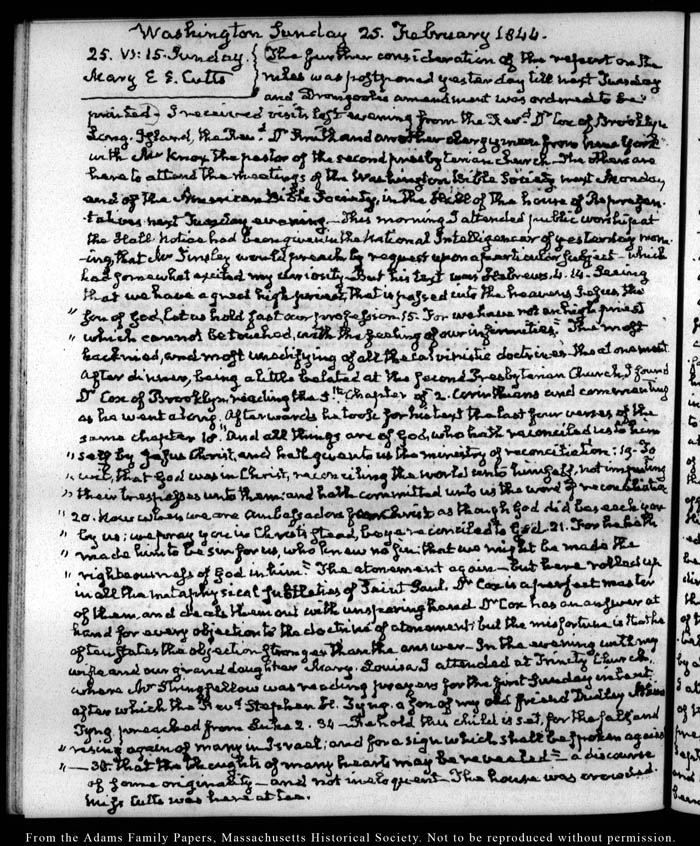 Washington Sunday 25. February 1844.
25. VI:15. Sunday. The further consideration of the report on the
Mary E. E. Cutts rules was postponed yesterday till next Tuesday
and Dromgoole's amendment was ordered to be
printed. I received visits last evening from the Revd. Dr Cox of Brooklyn
Long-Island, the Revd. Dr and another clergyman from New York
with Mr Knox the pastor of the second presbyterian church. The others are
here to attend the meetings of the Washington Bible Society next Monday
and of the American Bible Society, in the Hall of the house of Represen-
tatives next Tuesday evening. This morning I attended public worship at
the Hall. Notice had been given in the National Intelligencer of yesterday morn-
ing, that Mr Tinsley would preach by request upon a particular subject - which
had somewhat excited my curiosity. But his text was Hebrews. 4. 14. Seeing
that we have a great high priest, that is passed into the heavens, Jesus the
" Son of God, let us hold fast our profession. 15. For we have not an high priest
" which cannot be touched, with the feeling of our infirmities." The most
hacknied, and most unedifying of all the calvinistic doctrines - the atonement
After dinner, being a little belated at the Second Presbyterian Church, I found
Dr Cox of Brooklyn, reading the 5th Chapter of 2. Corinthians and commenting
as he went along. Afterwards he took for his text the last four verses of the
same chapter 18 "And all things are of God, who hath reconciled us to him
" self by Jesus Christ, and hath given to us the ministry of reconciliation: 19. To
" wit, that God was in Christ, reconciling the world unto himself, not imputing
" their trespasses unto them; and hath committed unto us the word of reconciliation
" 20. Now then we are Ambassadors for Christ as though God did beseech you
" by us: we pray you in Christ's stead, be ye reconciled to God. 21. For he hath
" made him to be sin for us, who knew no sin; that we might be made the
" righteousness of God in him." The atonement again - but here rolled up
in all the metaphysical subtleties of Saint Paul. Dr Cox is a perfect master
of them, and deals them out with unsparing hand. Dr Cox has an answer at
hand for every objection to the doctrine of atonement; but the misfortune is that he
often states the objection stronger than the answer. In the evening with my
wife and our granddaughter Mary-Louisa I attended at Trinity Church,
where Mr Stringfellow was reading prayers for the first Sunday in Lent
after which the Revd. Stephen H. Tyng, a son of my old friend Dudley Atkins
Tyng preached from Luke 2. 34 - Behold this child is set, for the fall and
" rising again of many in Israel; and for a sign which shall be spoken against
" - 35. that the thoughts of many hearts may be revealed" - a discourse
of some originality - and not ineloquent. The house was crowded.
Miss Cutts was here at tea.
From the Adams Family Papers, Massachusetts Historical Society. Not to be reproduced without permission.